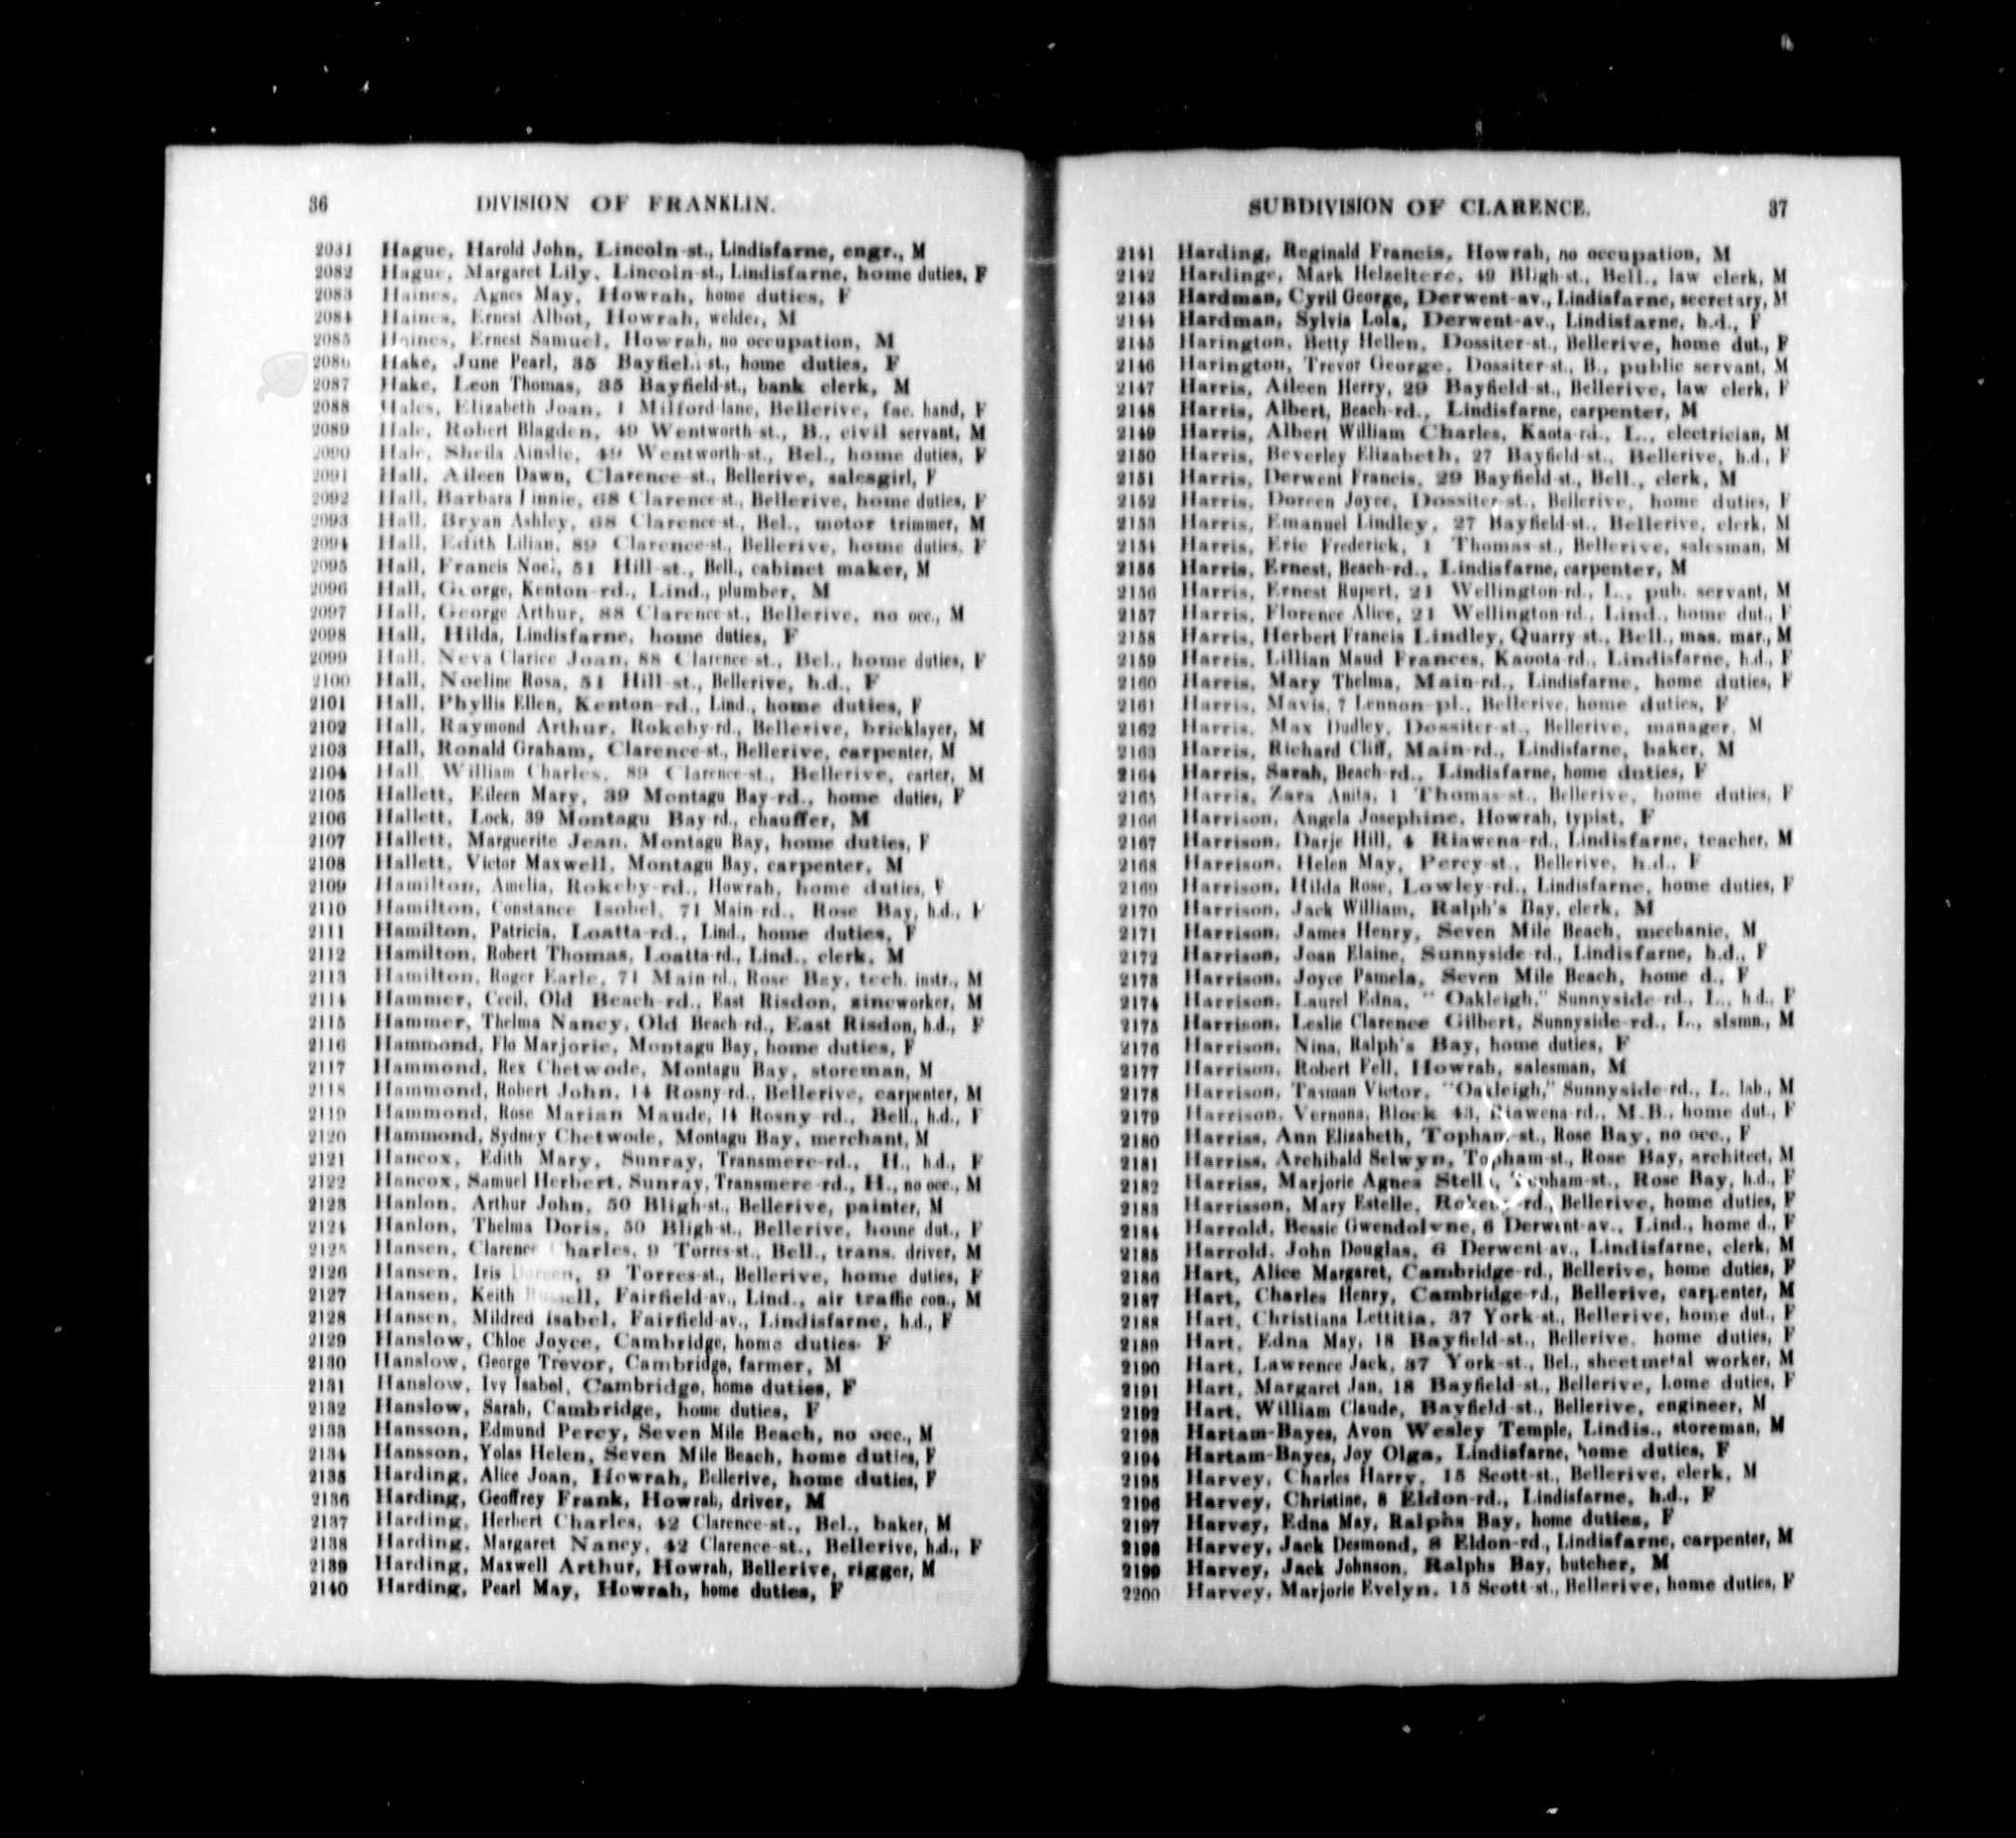 36 DIVISION OF FRANKLIN.
2081 Hague, Harold John, Lincoln-st., Lindisfarne, engr., M
2082 Hague, Margaret Lily, Lincoln-st., Lindisfarne, home duties, F
2083 Haines, Agnes May, Howrah, home duties, F
2084 Haines, Ernest Albot, Howrah, welder, M
2085 Haines, Ernest Samuel, Howrah, no occupation, M
2086 Hake, June Pearl, 35 Bayfield-st., home duties, F
2087 Hake, Leon Thomas, 35 Bayfield-st., bank clerk, M
2088 Hales, Elizabeth Joan, 1 Milford-lane, Bellerive, fac. hand, F
2089 Hale, Robert Blagden, 49 Wentworth-st., B., civil servant, M
2090 Hale, Sheila Ainslie, 49 Wentworth-st., Bel., home duties, F
2091 Hall, Aileen Dawn, Clarence-st., Bellerive, salesgirl, F
2092 Hall, Barbara Linnie, 68 Clarence-st., Bellerive, home duties, F
2093 Hall, Bryan Ashley, 68 Clarence-st., Bel., motor trimmer, M
2094 Hall, Edith Lilian, 89 Clarence-st., Bellerive, home duties, F
2095 Hall, Francis Noel, 51 Hill-st., Bell., cabinet maker, M
2096 Hall, George, Kenton-rd., Lind., plumber, M
2097 Hall, George Arthur, 88 Clarence-st., Bellerive, no occ., M
2098 Hall, Hilda, Lindisfarne, home duties, F
2099 Hall, Neva Clarice Joan, 88 Clarence-st., Bel., home duties, F
2100 Hall, Noeline Rosa, 51 Hill-st., Bellerive, h.d., F
2101 Hall, Phyllis Ellen, Kenton-rd., Lind., home duties, F
2102 Hall, Raymond Arthur, Rokeby-rd., Bellerive, bricklayer, M
2103 Hall, Ronald Graham, Clarence-st., Bellerive, carpenter, M
2104 Hall, William Charles, 89 Clarence-st., Bellerive, carter, M
2105 Hallett, Eileen Mary, 39 Montagu Bay-rd., home duties, F
2106 Hallett, Lock, 39 Montagu Bay-rd., chauffer, M
2107 Hallett, Marguerite Jean, Montagu Bay, home duties, F
2108 Hallett, Victor Maxwell, Montagu Bay, carpenter, M
2109 Hamilton, Amelia, Rokeby-rd., Howrah, home duties, F
2110 Hamilton, Constance Isobel, 71 Main-rd., Rose Bay, h.d., F
2111 Hamilton, Patricia, Loatta-rd., Lind., home duties, F
2112 Hamilton, Robert Thomas, Loatta-rd., Lind., clerk, M
2113 Hamilton, Roger Earle, 71 Main-rd., Rose Bay, tech. instr., M
2114 Hammer, Cecil, Old Beach-rd., East Risdon, zincworker, M
2115 Hammer, Thelma Nancy, Old Beach-rd., East Risdon, h.d., F
2116 Hammond, Flo Marjorie, Montagu Bay, home duties, F
2117 Hammond, Rex Chetwode, Montagu Bay, storeman, M
2118 Hammond, Robert John, 14 Rosny-rd., Bellerive, carpenter, M
2119 Hammond, Rose Marian Maude, 14 Rosny-rd., Bell., h.d., F
2120 Hammond, Sydney Chetwode, Montagu Bay, merchant, M
2121 Hancox, Edith Mary, Sunray, Transmere-rd., H., h.d., F
2122 Hancox, Samuel Herbert, Sunray, Transmere-rd., H., no occ., M
2123 Hanlon, Arthur John, 50 Bligh-st., Bellerive, painter, M
2124 Hanlon, Thelma Doris, 50 Bligh-st., Bellerive, home dut., F
2125 Hansen, Clarence Charles, 9 Torres-st., Bell., trans. driver, M
2126 Hansen, Iris 9 Torres-st., Bellerive, home duties, F
2127 Hansen, Keith Fairfield-av., Lind., air traffic con., M
2128 Hansen, Mildred Isabel, Fairfield-av., Lindisfarne, h.d., F
2129 Hanslow, Chloe Joyce, Cambridge, home duties, F
2130 Hanslow, George Trevor, Cambridge, farmer, M
2131 Hanslow, Ivy Isabel, Cambridge, home duties, F
2132 Hanslow, Sarah, Cambridge, home duties, F
2133 Hansson, Edmund Percy, Seven Mile Beach, no occ., M
2134 Hansson, Yolas Helen, Seven Mile Beach, home duties, F
2135 Harding, Alice Joan, Howrah, Bellerive, home duties, F
2136 Harding, Geoffrey Frank, Howrah, driver, M
2137 Harding, Herbert Charles, 42 Clarence-st., Bel., baker, M
2138 Harding, Margaret Nancy, 42 Clarence-st., Bellerive, h.d., F
2139 Harding, Maxwell Arthur, Howrah, Bellerive, rigger, M
2140 Harding, Pearl May, Howrah, home duties, F
SUBDIVISION OF CLARENCE. 37
2141 Harding, Reginald Francis, Howrah, no occupation, M
2142 Hardinge, Mark Helzeltere, 49 Bligh-st., Bell., law clerk, M
2143 Hardman, Cyril George, Derwent-av., Lindisfarne, secretary, M
2144 Hardman, Sylvia Lola, Derwent-av., Lindisfarne, h.d., F
2145 Harington, Betty Hellen, Dossiter-st., Bellerive, home dut., F
2146 Harington, Trevor George, Dossiter-st., B., public servant, M
2147 Harris, Aileen Herry, 29 Bayfield-st., Bellerive, law clerk, F
2148 Harris, Albert, Beach-rd., Lindisfarne, carpenter, M
2149 Harris, Albert William Charles, Kaota-rd., L., electrician, M
2150 Harris, Beverley Elizabeth, 27 Bayfield-st., Bellerive, h.d., F
2151 Harris, Derwent Francis, 29 Bayfield-st., Bell., clerk, M
2152 Harris, Doreen Joyce, Dossiter-st., Bellerive, home duties, F
2153 Harris, Emanuel Lindley, 27 Bayfield-st., Bellerive, clerk, M
2154 Harris, Eric Frederick, 1 Thomas-st., Bellerive, salesman, M
2155 Harris, Ernest, Beach-rd., Lindisfarne, carpenter, M
2156 Harris, Ernest Rupert, 21 Wellington-rd., L., pub. servant, M
2157 Harris, Florence Alice, 21 Wellington-rd., Lind., home dut., F
2158 Harris, Herbert Francis Lindley, Quarry-st., Bell., mas. mar., M
2159 Harris, Lillian Maud Frances, Kaoota-rd., Lindisfarne, h.d., F
2160 Harris, Mary Thelma, Main-rd., Lindisfarne, home duties, F
2161 Harris, Mavis, 7 Lennon-pl., Bellerive, home duties, F
2162 Harris, Max Dudley, Dossiter-st., Bellerive, manager, M
2163 Harris, Richard Cliff, Main-rd., Lindisfarne, baker, M
2164 Harris, Sarah, Beach-rd., Lindisfarne, home duties, F
2165 Harris, Zara Anita, 1 Thomas-st., Bellerive, home duties, F
2166 Harrison, Angela Josephine, Howrah, typist, F
2167 Harrison, Darje Hill, 4 Riawena-rd., Lindisfarne, teacher, M
2168 Harrison, Helen May, Percy-st., Bellerive, h.d., F
2169 Harrison, Hilda Rose, Lowley-rd., Lindisfarne, home duties, F
2170 Harrison, Jack William, Ralph's Bay, clerk, M
2171 Harrison, James Henry, Seven Mile Beach, mechanic, M
2172 Harrison, Joan Elaine, Sunnyside-rd., Lindisfarne, h.d., F
2173 Harrison, Joyce Pamela, Seven Mile Beach, home d., F
2174 Harrison, Laurel Edna, "Oakleigh," Sunnyside-rd., L., h.d., F
2175 Harrison, Leslie Clarence Gilbert, Sunnyside-rd., L., slsmn., M
2176 Harrison, Nina, Ralph's Bay, home duties, F
2177 Harrison, Robert Fell, Howrah, salesman, M
2178 Harrison, Tasman Victor, "Oakleigh," Sunnyside-rd., L. lab., M
2179 Harrison, Vernona, Block 43, Riawena-rd., M.B., home dut., F
2180 Harriss, Ann Elizabeth, Topham-st., Rose Bay, no occ., F
2181 Harriss, Archibald Selwyn, Topham-st., Rose Bay, architect, M
2182 Harriss, Marjorie Agnes Stella, Topham-st., Rose Bay, h.d., F
2183 Harrisson, Mary Estelle, Rokeby-rd., Bellerive, home duties, F
2184 Harrold, Bessie Gwendolyne, 6 Derwent-av., Lind., home d., F
2185 Harrold, John Douglas, 6 Derwent-av., Lindisfarne, clerk, M
2186 Hart, Alice Margaret, Cambridge-rd., Bellerive, home duties, F
2187 Hart, Charles Henry, Cambridge-rd., Bellerive, carpenter, M
2188 Hart, Christiana Lettitia, 37 York-st., Bellerive, home dut., F
2189 Hart, Edna May, 18 Bayfield-st., Bellerive, home duties, F
2190 Hart, Lawrence Jack, 37 York-st., Bel., sheetmetal worker, M
2191 Hart, Margaret Jan, 18 Bayfield-st., Bellerive, home duties, F
2192 Hart, William Claude, Bayfield-st., Bellerive, engineer, M
2193 Hartam-Bayes, Avon Wesley Temple, Lindis., storeman, M
2194 Hartam-Bayes, Joy Olga, Lindisfarne, home duties, F
2195 Harvey, Charles Harry, 15 Scott-st., Bellerive, clerk, M
2196 Harvey, Christine, 8 Eldon-rd., Lindisfarne, h.d., F
2197 Harvey, Edna May, Ralphs Bay, home duties, F
2198 Harvey, Jack Desmond, 8 Eldon-rd., Lindisfarne, carpenter, M
2199 Harvey, Jack Johnson, Ralphs Bay, butcher, M
2200 Harvey, Marjorie Evelyn, 15 Scott-st., Bellerive, home duties, F